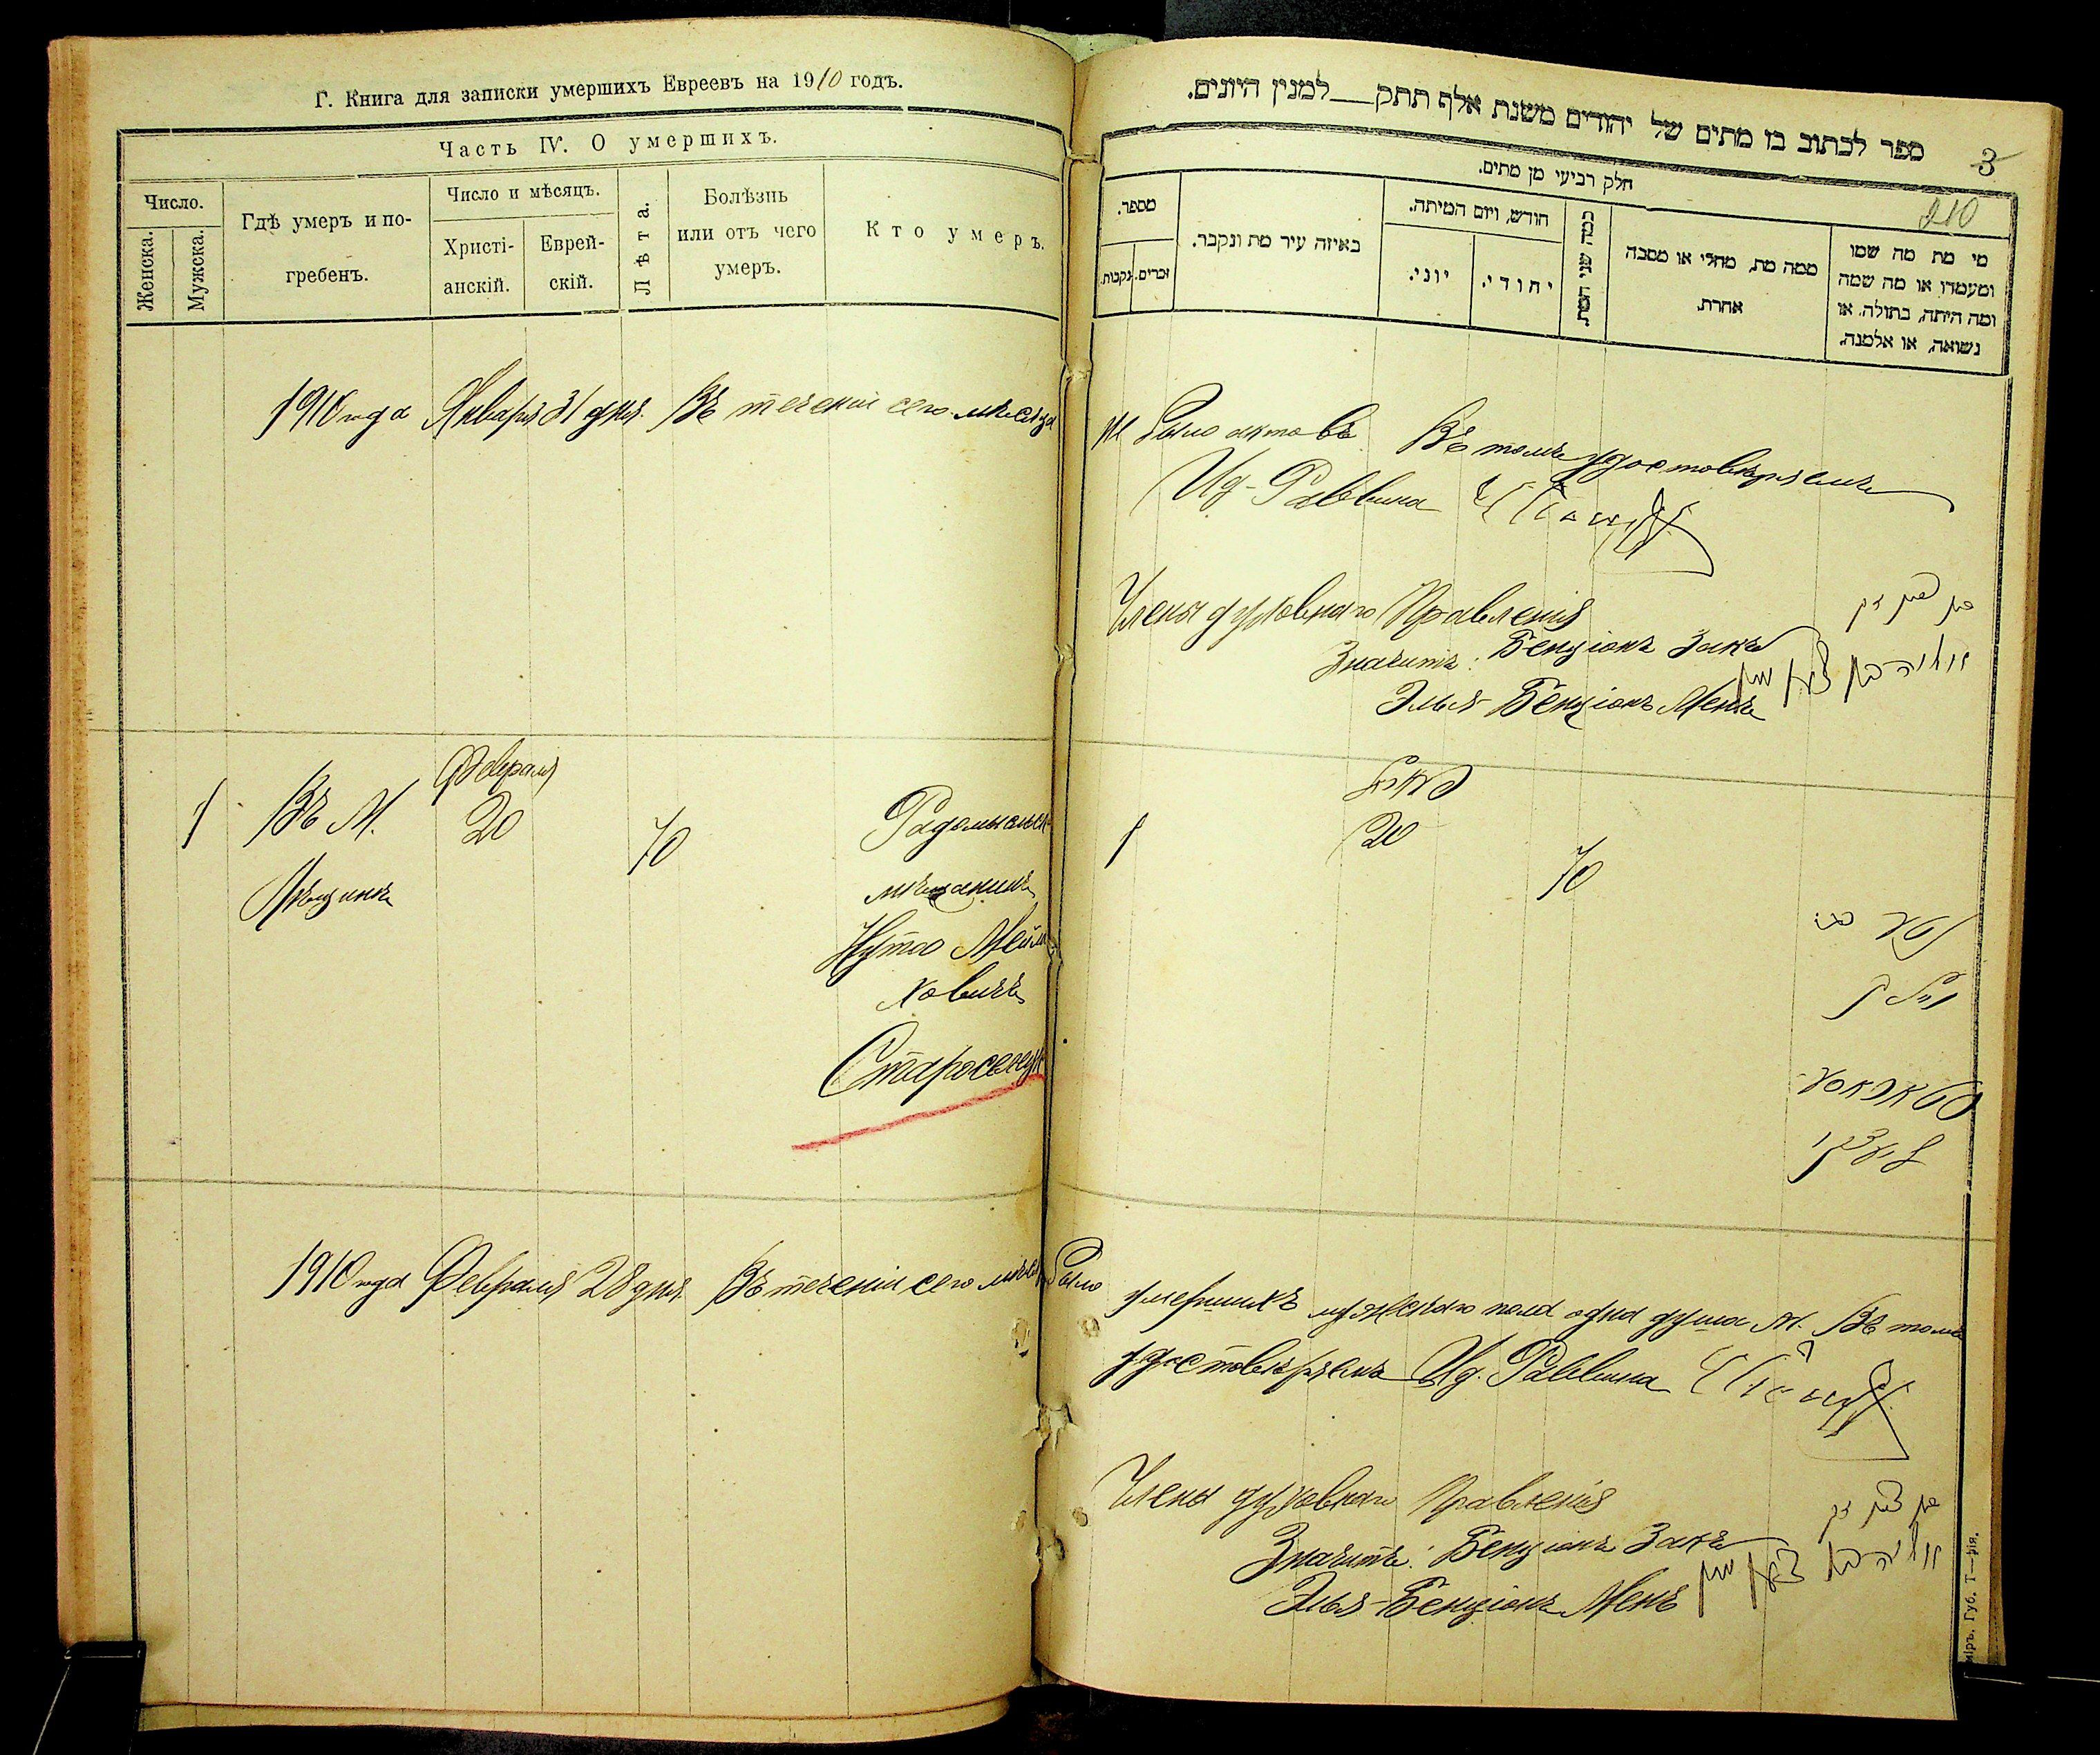 Г. Книга для записки умершихъ Евреевъ на 1910 годъ.
Часть IV. О умершихъ.
Число.
Женска.
Мужска.
Гдѣ умеръ и по-
гребенъ.
Число и мѣсяцъ.
Христі-
анскій.
Еврей-
скій.
Лѣта.
Болѣзнь
или отъ чего
умеръ.
Кто умеръ.
1910 года Января 31 дня. Въ теченіи сего мѣсяца
Февраля
1 Въ М. 20 70 Радомысльск
мѣщанинъ
Нута Мейл
ховичъ
Старосельск
1910 года Февраля 28 дня. Въ теченіи сего мѣся
ספר לכתוב בו מתים של יהודים משנת אלף תתק__למנין היונים.
3
210
חלק רביעי מן מתים.
מספר.
זכרים.
נקבות.
באיזה עיר מת ונקבר.
חודש, ויום המיתה.
יוני.
יהודי.
כמה שני המת.
ממה מת, מחלי או מסבה
אחרת.
מי מת מה שמו
ומעמדו או מה שמה
ומה היתה, בתולה, או
נשואה, או אלמנה.
было актовъ Въ томъ удостовѣряемъ
И д. Раввина
Члены духовнаго Правленія
Значитъ: Бенціонъ Закъ
Элья-Бенціонъ Менъ
1 20 70
было
умершихъ мужскаго пола одна душа М. Въ томъ
удостовѣряемъ И д. Раввина
Члены духовнаго Правленія
Значитъ: Бенціонъ Закъ
Элья-Бенціонъ Менъ
Губ. Т—рія.